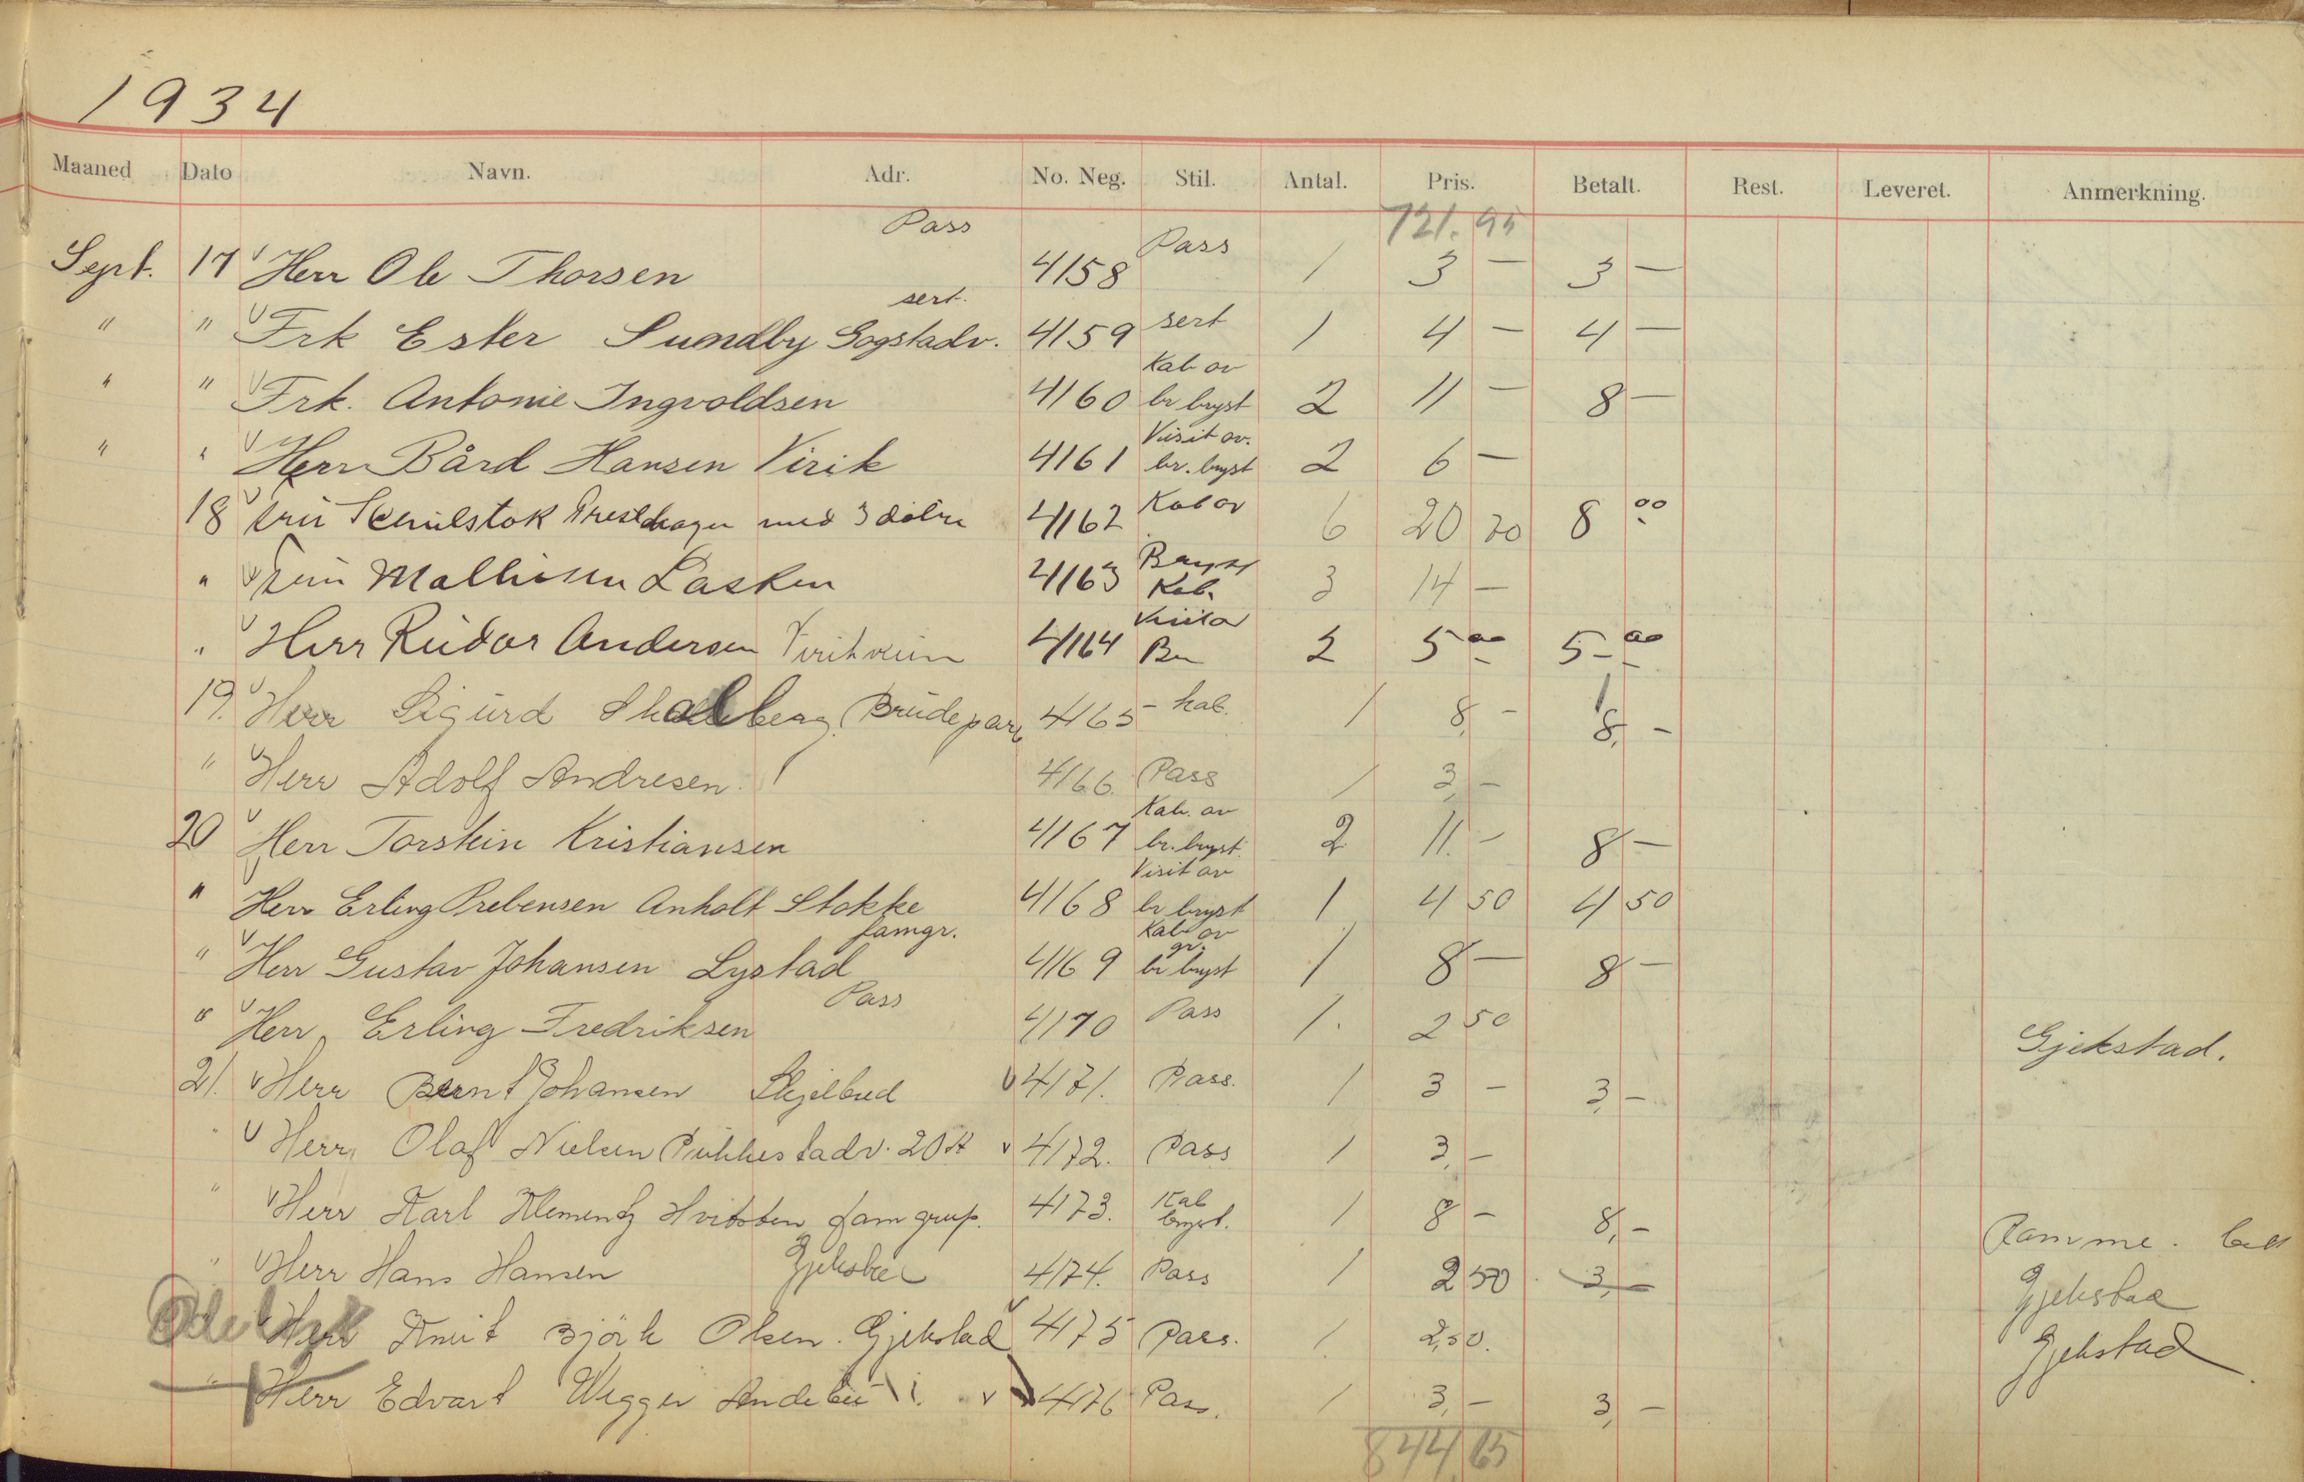 1934
Maaned Dato Navn. Adr. No. Neg. Stil. Antal. Pris. Betalt. Rest. Leveret. Anmerkning.
721.95
Pass
Sept. 17 Herr Ole Thorsen 4158 Pass 1 3 — 3 —
sert.
" " Frk Ester Sundby Gogstadv. 4159 sert 1 4 — 4 —
" " Frk. Antonie Ingvoldsen 4160 Kab av br bryst 2 11 — 8 —
" " Herr Bård Hansen Virik 4161 Visit av. br. bryst 2 6 —
18 Fru Skulstok Presthagen med 3 døtre 4162 Kab av 6 20 20 8 00
" Fru Mathisen Lasken 4163 Bryst Kab. 3 14 —
" Herr Reidar Andersen Virikveien 4164 Visit av Br 2 5 00 5 - 00
19. Herr Sigurd Skalleberg Brudepar 4165 - kab. 1 8, - 8, -
" Herr Adolf Andresen 4166. Pass 1 3, -
20 Herr Torstein Kristiansen 4167 Kab. av br. bryst. 2 11. - 8 —
" Herr Erling Prebensen Anholt Stokke 4168 Visit av br bryst 1 4 50 4 50
famgr.
" Herr Gustav Johansen Lystad 4169 Kab av gr. br bryst 1 8 — 8 —
Pass
" Herr Erling Fredriksen 4170 Pass 1. 2 50 Gjekstad.
21. Herr Bernt Johansen Skjelbred 4171. Pass. 1 3 - 3, -
" Herr Olaf Nielsen Pukkestadv. 20 A 4172. Pass 1 3, -
" Herr Karl Klementz Hvitsten fam grup. 4173. Kab bryst. 1 8 - 8, - Ramme.
" Herr Hans Hansen Gjekstad 4174. Pass 1 2 50 3, - Gjekstad
" Herr Knut Björk Olsen. Gjekstad 4175 Pass. 1 2,50. Gjekstad
" Herr Edvart Wegger Andebu 4176 Pass. 1 3, - 3, -
844.65